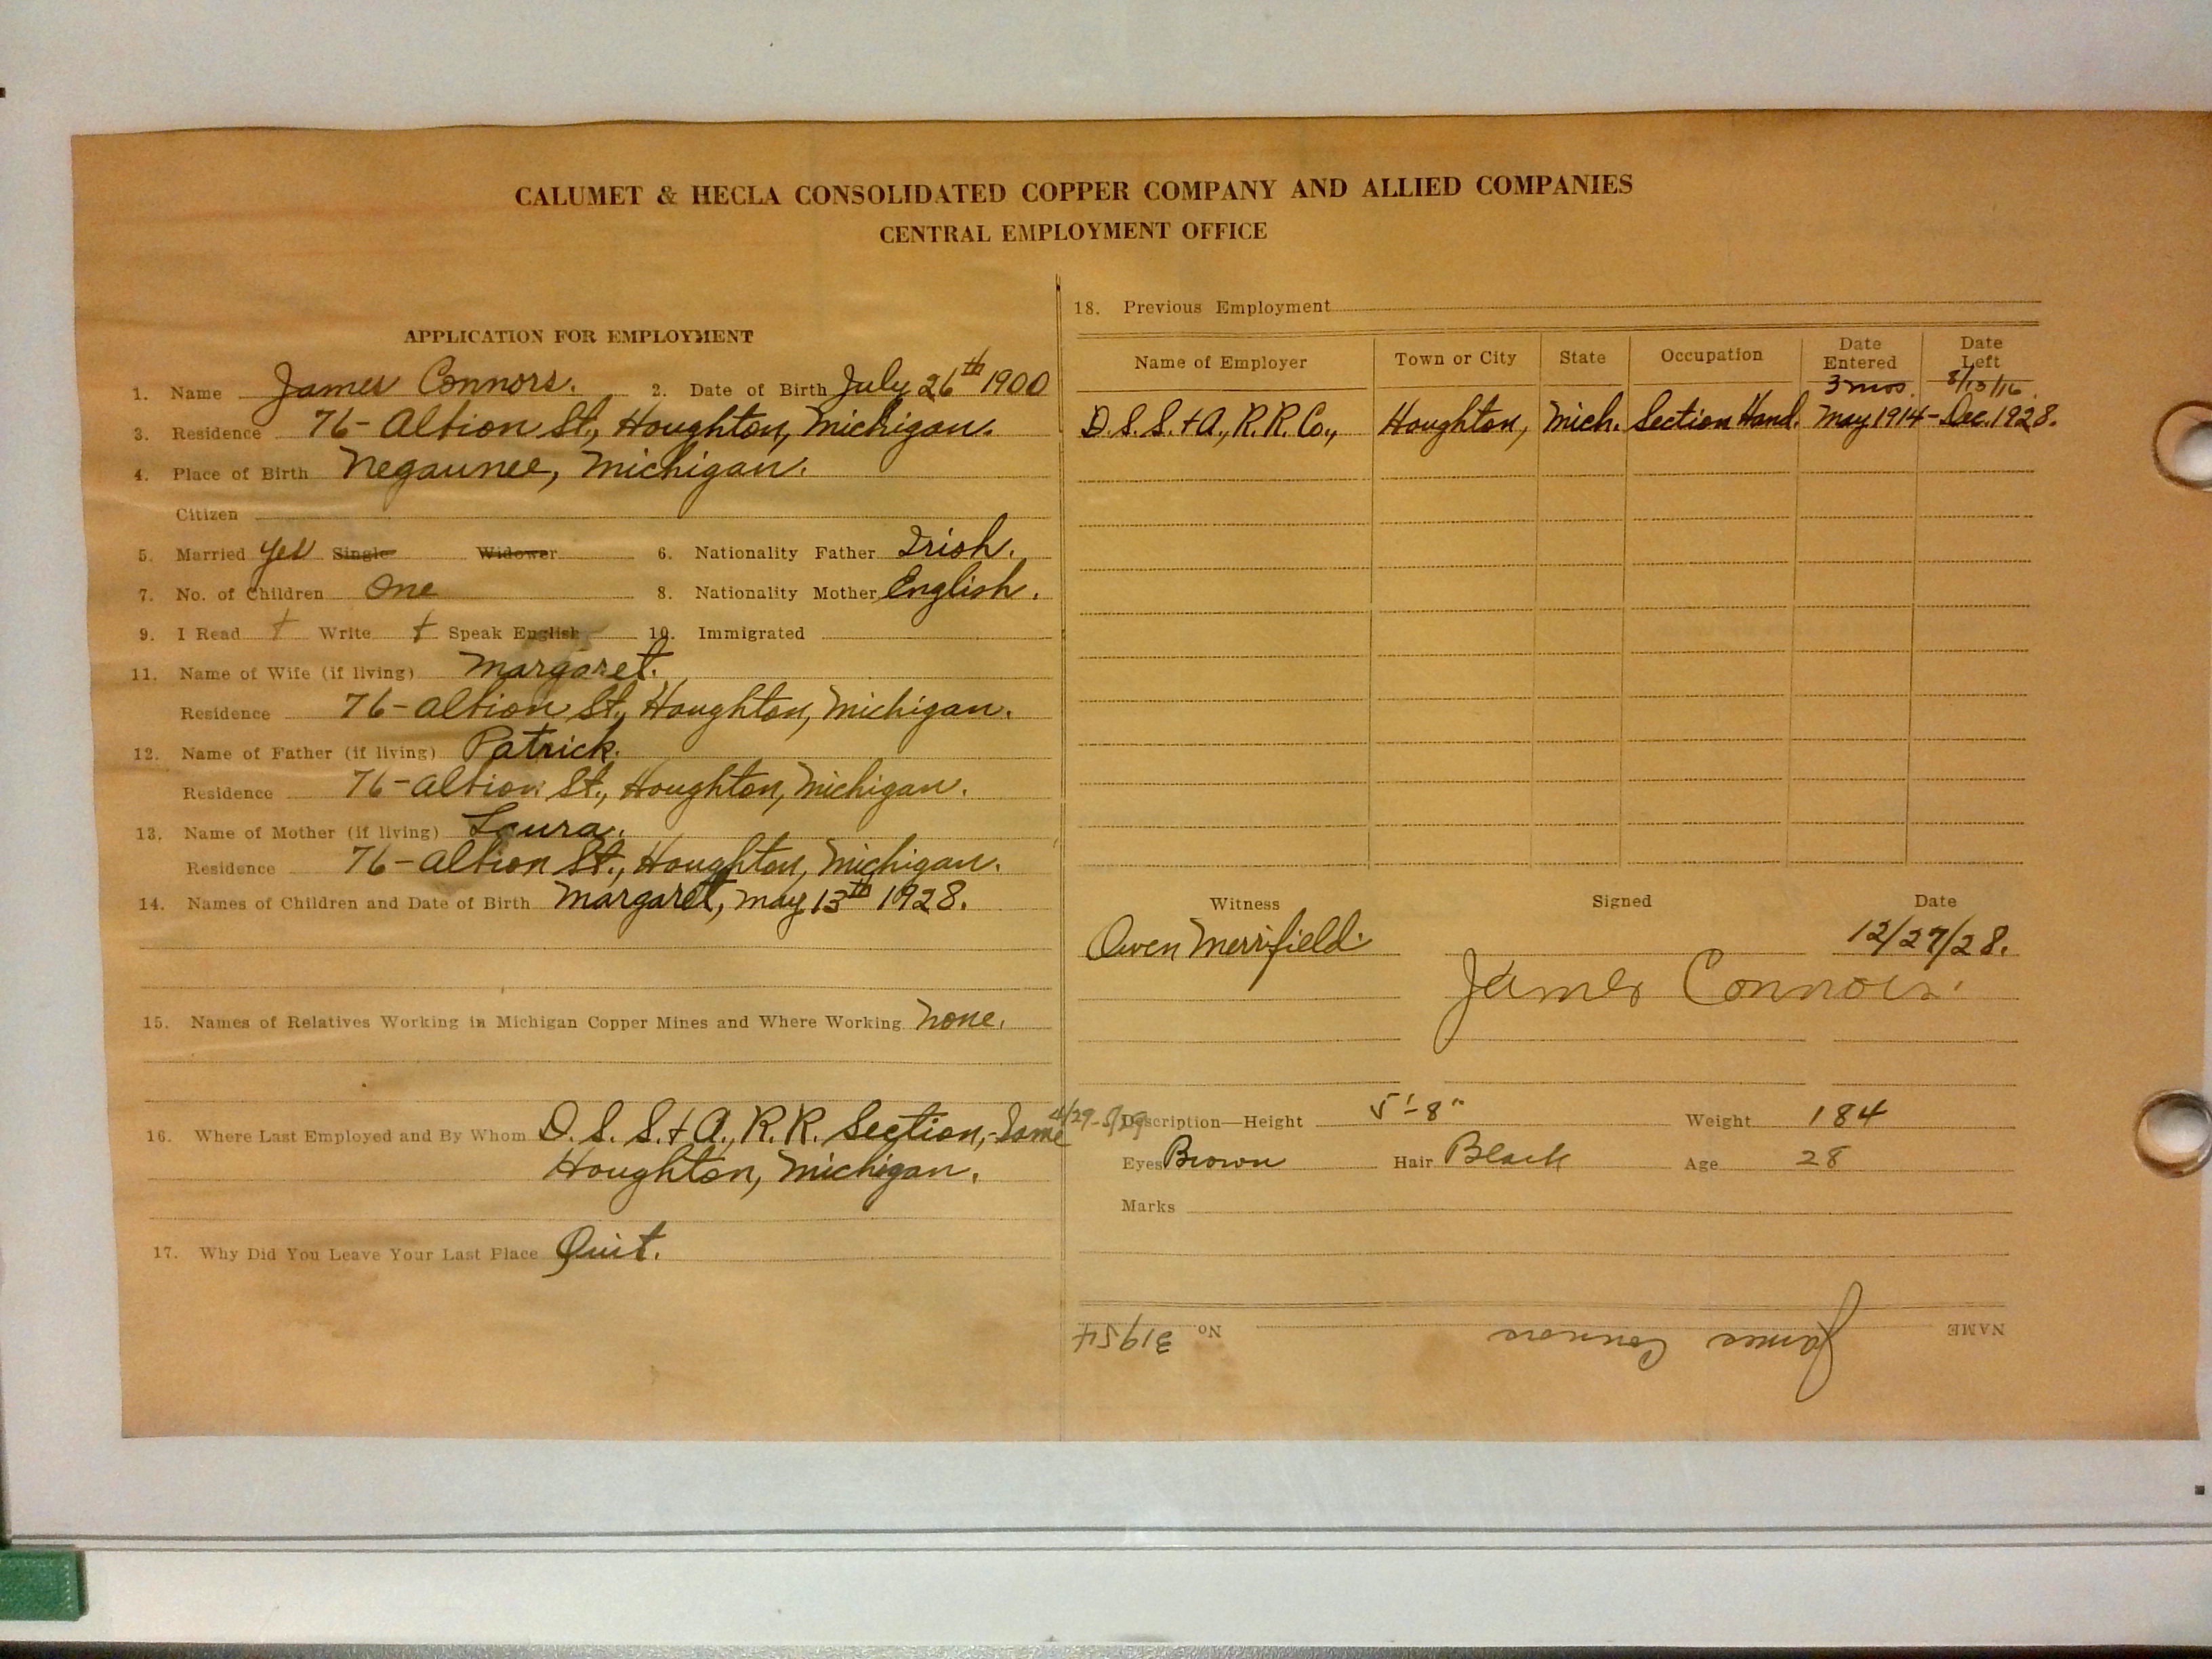 CALUMET & HECLA CONSOLIDATED COPPER COMPANY AND ALLIED COMPANIES
CENTRAL EMPLOYMENT OFFICE
APPLICATION FOR EMPLOYMENT
1. Name James Connors. 2. Date of Birth July 26th 1900
3. Residence 76- Albion St., Houghton, Michigan.
4. Place of Birth Negaunee, Michigan.
Citizen
5. Married Yes Single Widower 6. Nationality Father Irish.
7. No. of Children One 8. Nationality Mother English.
9. I Read † Write † Speak English 10. Immigrated
11. Name of Wife (if living) Margaret.
Residence 76- Albion St., Houghton, Michigan.
12. Name of Father (if living) Patrick.
Residence 76- Albion St., Houghton, Michigan.
13. Name of Mother (if living) Laura.
Residence 76- Albion St., Houghton, Michigan.
14. Names of Children and Date of Birth Margaret, May 13th 1928.
15. Names of Relatives Working in Michigan Copper Mines and Where Working None.
16. Where Last Employed and By Whom D. S. S. & A., R. R. Section,- Same 4/29-5/29
Houghton, Michigan.
17. Why Did You Leave Your Last Place Quit.
18. Previous Employment
Name of Employer Town or City State Occupation Date Entered Date Left
3 mos. 8/13/16.
D. S. S. & A., R. R. Co., Houghton, Mich. Section Hand. May 1914 - Dec. 1928.
Witness Signed Date
Owen Merrifield. 12/27/28.
James Connors.
Description—Height 5'-8" Weight 184
Eyes Brown Hair Black Age 28
Marks
NAME James Connors No 31954